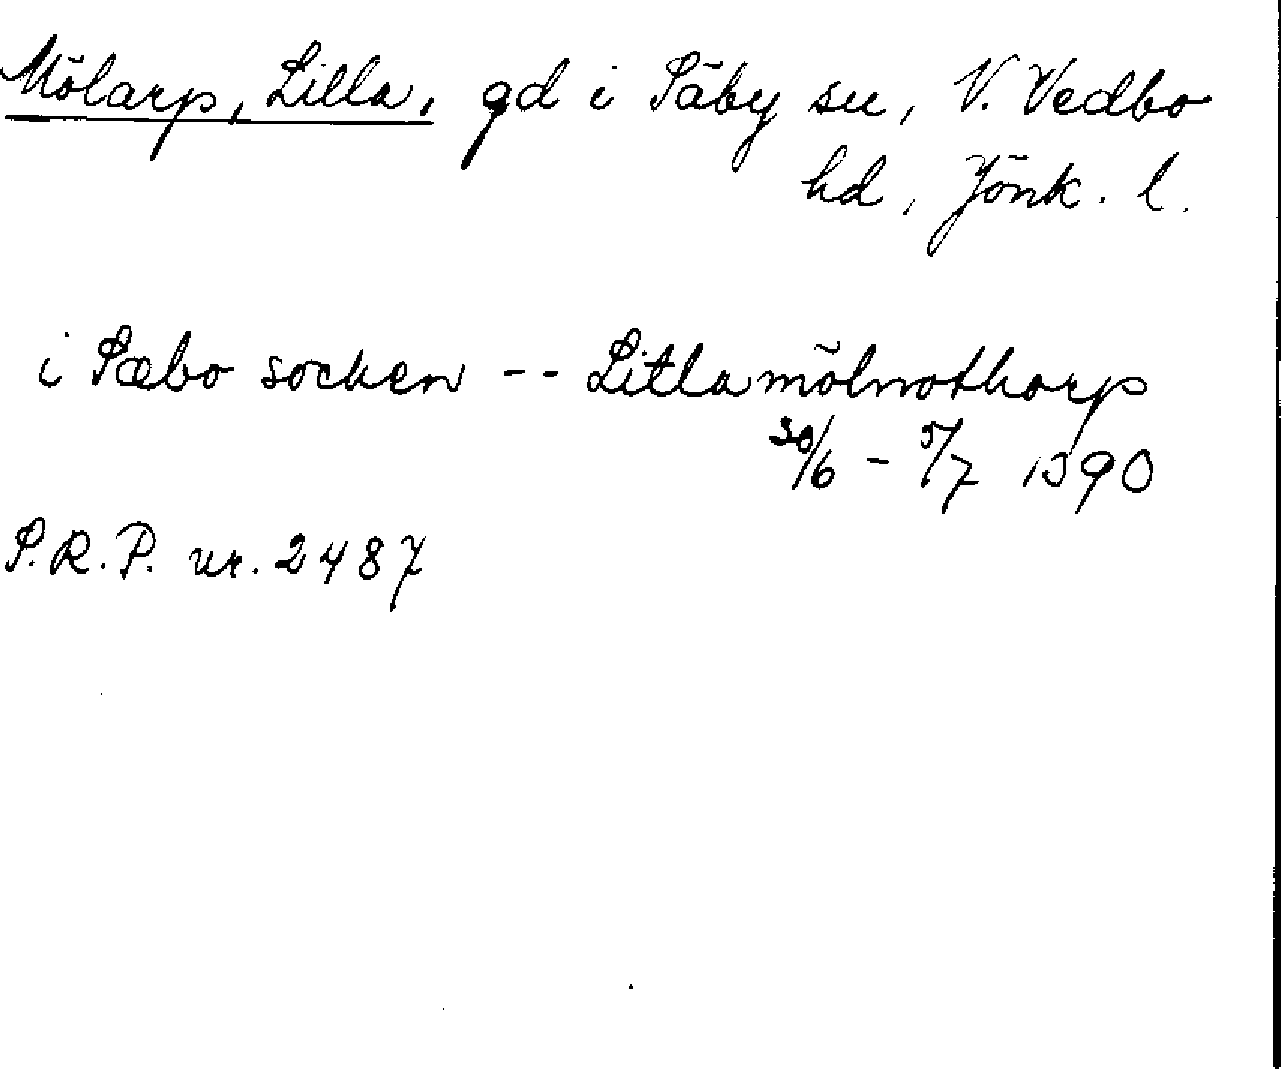 Mölarp, Lilla, gd i Säby sn, N. Vedbo
hd, Jönk. l.
i Sæbo socken -- Litla mölnothorp
30/6 - 5/7 1390
S.R.P. nr. 2487